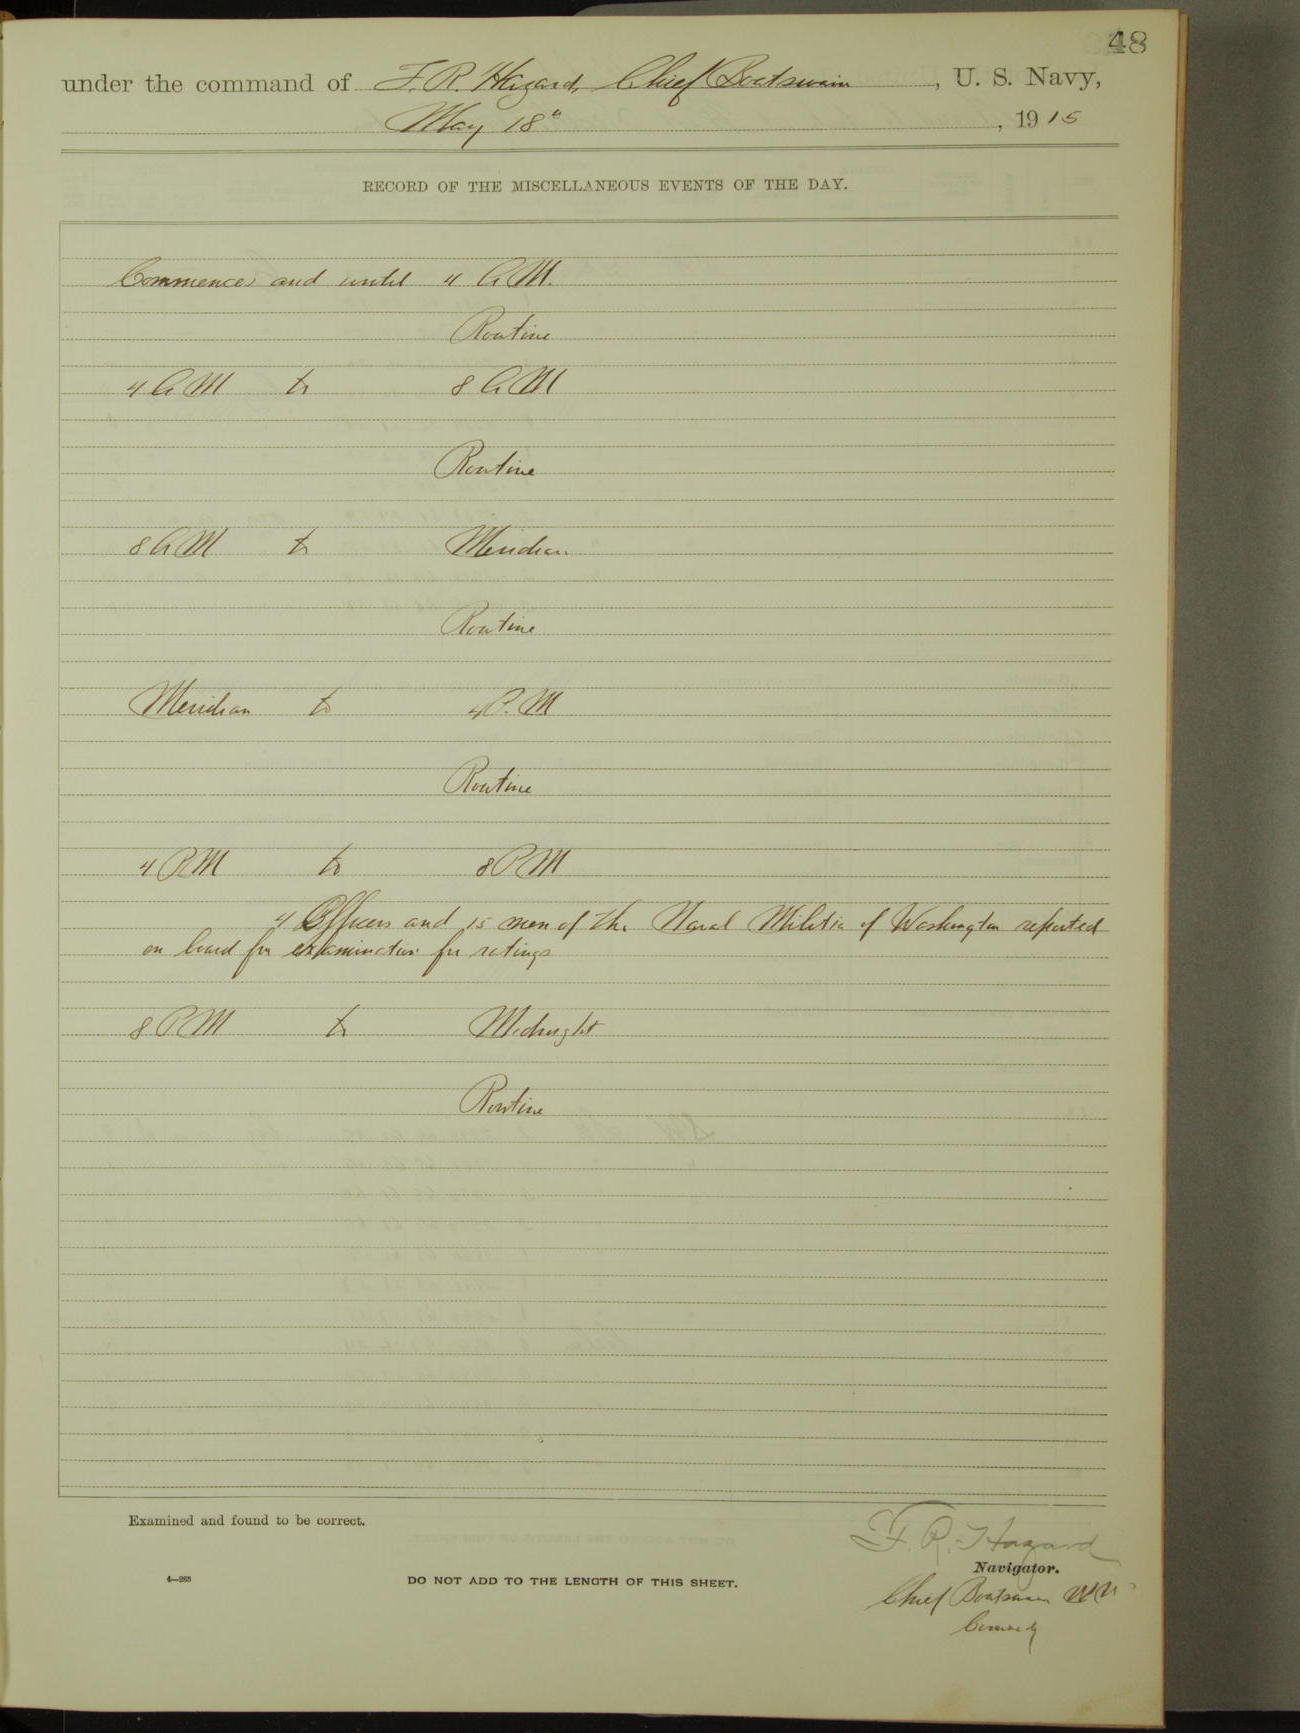 48
under the command of F. R. Hazard, Chief Boatswain, U. S. Navy,
May 18", 1915
RECORD OF THE MISCELLANEOUS EVENTS OF THE DAY.
Commences and until 4 A.M.
Routine
4 A M to 8 A M
Routine
8 A M to Meridian
Routine
Meridian to 4 P. M
Routine
4 P M to 8 P M
4 Officers and 15 men of the Naval Militia of Washington reported
on board for examination for ratings
8 P M to Midnight
Routine
Examined and found to be correct.
F. R. Hazard
Navigator.
4—265
DO NOT ADD TO THE LENGTH OF THIS SHEET.
Chief Boatswain